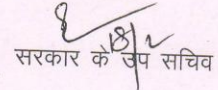 18/2
सरकार के उप सचिव